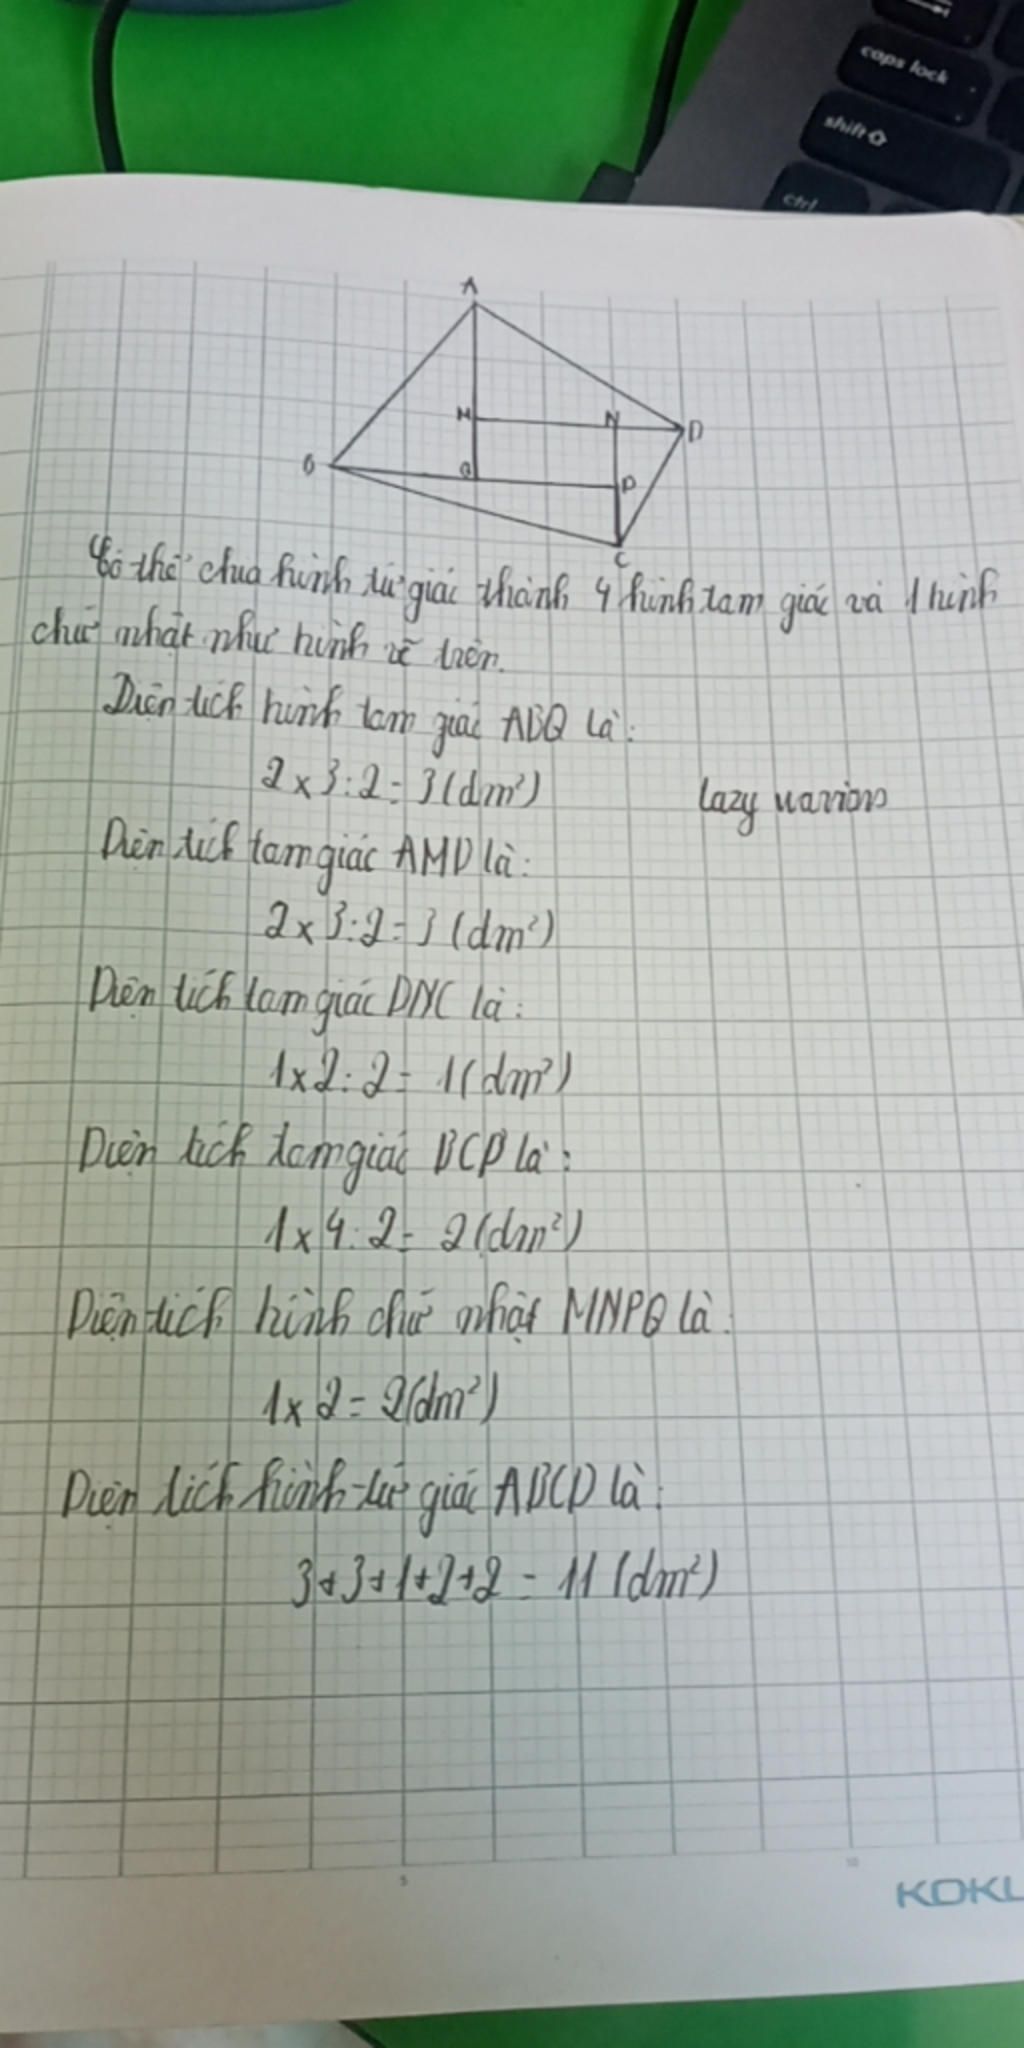 caps lock
shift
ctrl
A
M
N
D
B
Q
P
C
Có thể chia hình tứ giác thành 4 hình tam giác và 1 hình
chữ nhật như hình vẽ trên.
Diện tích hình tam giác ABQ là:
2 x 3 : 2 = 3 (dm²)
lazy warriors
Diện tích tam giác AMD là:
2 x 3 : 2 = 3 (dm²)
Diện tích tam giác DNC là:
1 x 2 : 2 = 1 (dm²)
Diện tích tam giác BCP là:
1 x 4 : 2 = 2 (dm²)
Diện tích hình chữ nhật MNPQ là:
1 x 2 = 2 (dm²)
Diện tích hình tứ giác ABCD là:
3 + 3 + 1 + 2 + 2 = 11 (dm²)
5
10